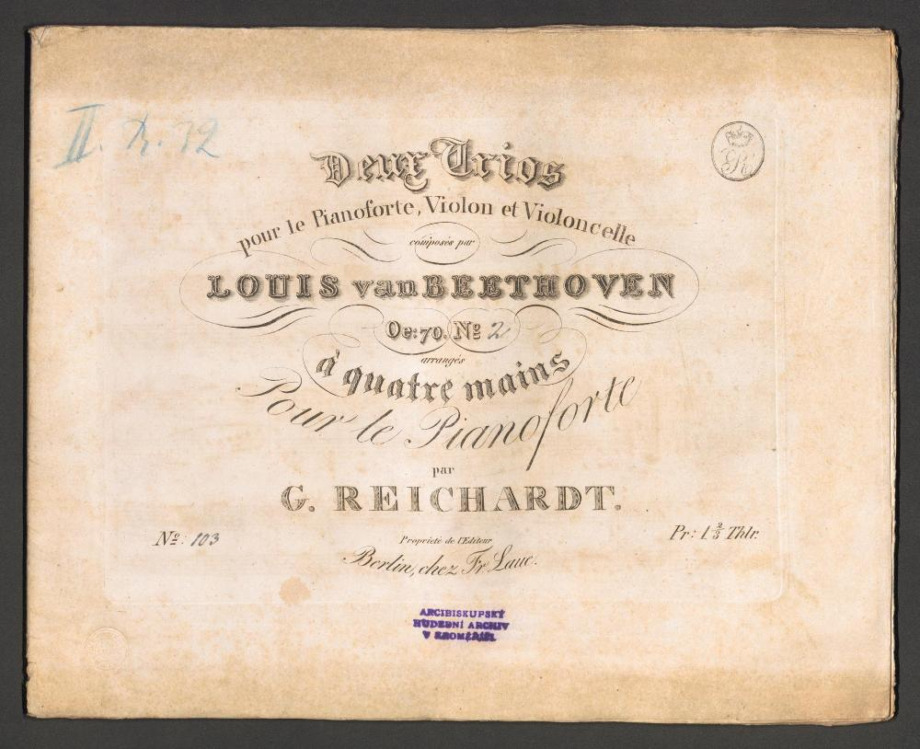 II. 
Deux Trios
pour le Pianoforte, Violon et Violoncelle
composés par
LOUIS van BEETHOVEN
Oe: 70. Nº 2
arrangés
à quatre mains
Pour le Pianoforte
par
G. REICHARDT.
Nº: 103
Propriété de l'Editeur
Pr: 1 2/3 Thlr.
Berlin, chez Fr Laue.
ARCIBISKUPSKÝ
HUDEBNÍ ARCHIV
V KROMĚŘÍŽI